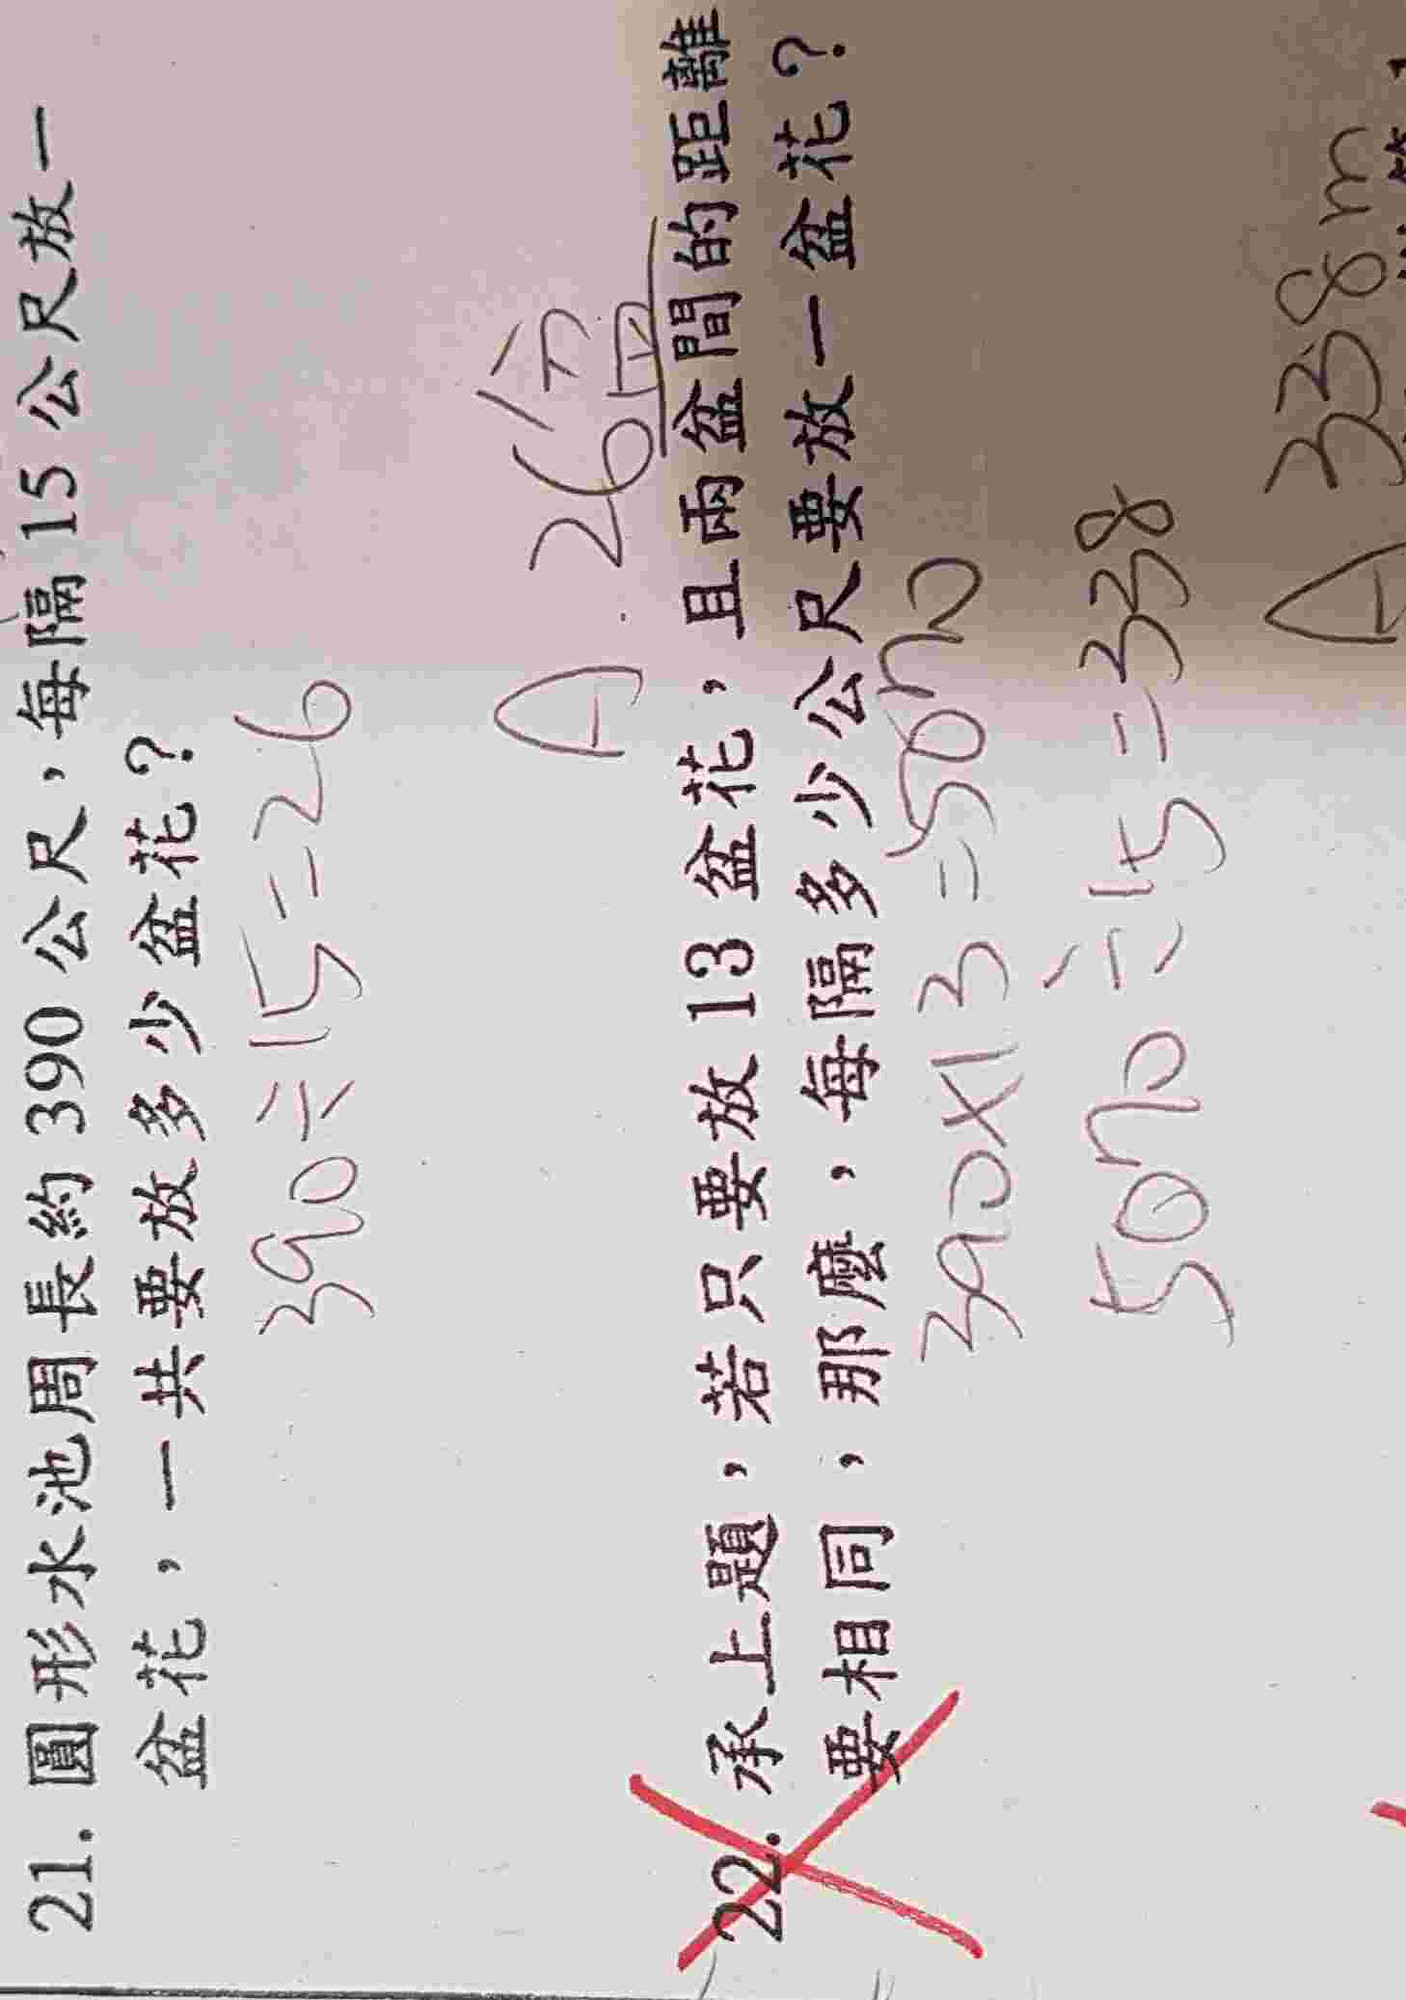 21. 圓形水池周長約 390 公尺，每隔 15 公尺放一
盆花，一共要放多少盆花？
390÷15=26
A. 26盆
22. 承上題，若只要放 13 盆花，且兩盆間的距離
要相同，那麼，每隔多少公尺要放一盆花？
390×13=5070
5070÷15=338
A 338m